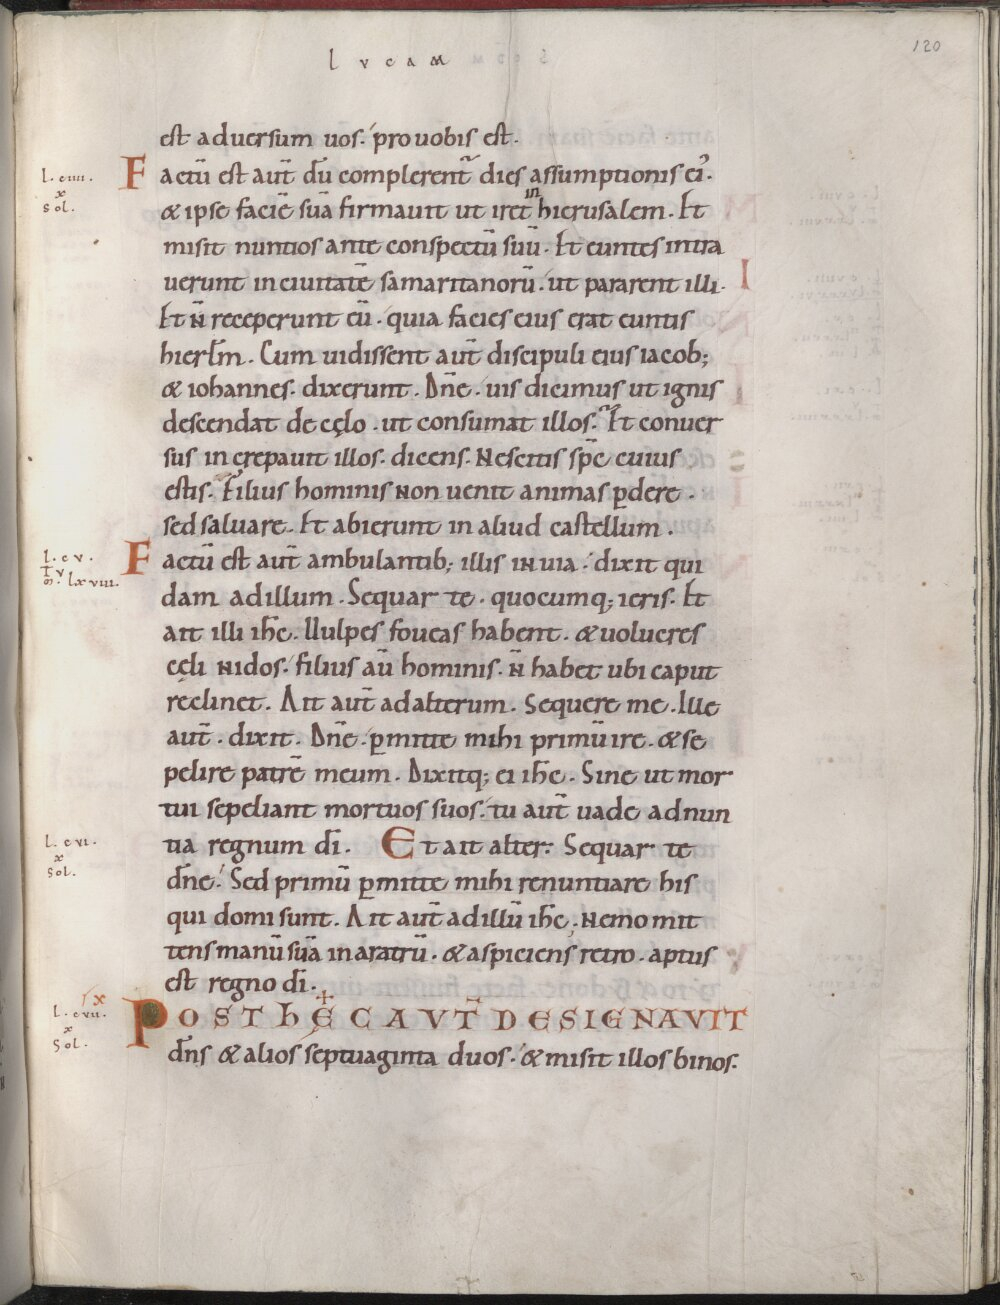 LVCAM
120
est aduersum uos. pro uobis est.
l. ciiii.
x
sol.
Factū est aut̄ dū complerent̄ dies assumptionis ei᾽.
& ipse faciē suā firmauit ut iret in hierusalem. Et
misit nuntios ante conspectū suū. Et euntes intra
uerunt in ciuitatē samaritanorū. ut pararent illi.
Et n̄ receperunt eū. quia facies eius erat euntis
hierl̄m. Cum uidissent aut̄ discipuli eius iacob;
& iohannes. dixerunt. Dn̄e. uis dicimus ut ignis
descendat de cęlo. ut consumat illos. Et conuer
sus increpauit illos. dicens. Nescitis sp̄c cuius
estis. Filius hominis non uenit animas ꝑdere.
sed saluare. Et abierunt in aliud castellum.
l. cv.
m̄. lxviii.
Factū est aut̄ ambulantib; illis in uia. dixit qui
dam ad illum. Sequar te. quocumq; ieris. Et
ait illi ih̄c. Uulpes foueas habent. & uolucres
cęli nidos. filius aū hominis. n̄ habet ubi caput
reclinet. Ait aut̄ ad alterum. Sequere me. Ille
aut̄. dixit. Dn̄e. ꝑmitte mihi primū ire. & se
pelire patrē meum. Dixitq; ei ih̄c. Sine ut mor
tui sepeliant mortuos suos. tu aut̄ uade adnun
l. cvi.
x
sol.
tia regnum dī. Et ait alter. Sequar te
dn̄e. Sed primū ꝑmitte mihi renuntiare his
qui domi sunt. Ait aut̄ ad illū ih̄c. Nemo mit
tens manū suā in aratrū. & aspiciens retro. aptus
est regno dī.
l. cvii.
x
sol.
POST hĘC AVT̄ DESIGNAVIT
dn̄s & alios septuaginta duos. & misit illos binos.